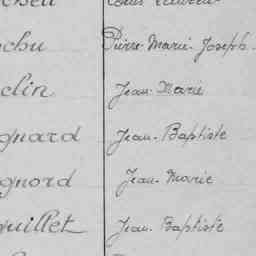 chu Pierre Marie Joseph
clin Jean Marie
gnard Jean-Baptiste
gnord Jean-Marie
quillet Jean-Baptiste